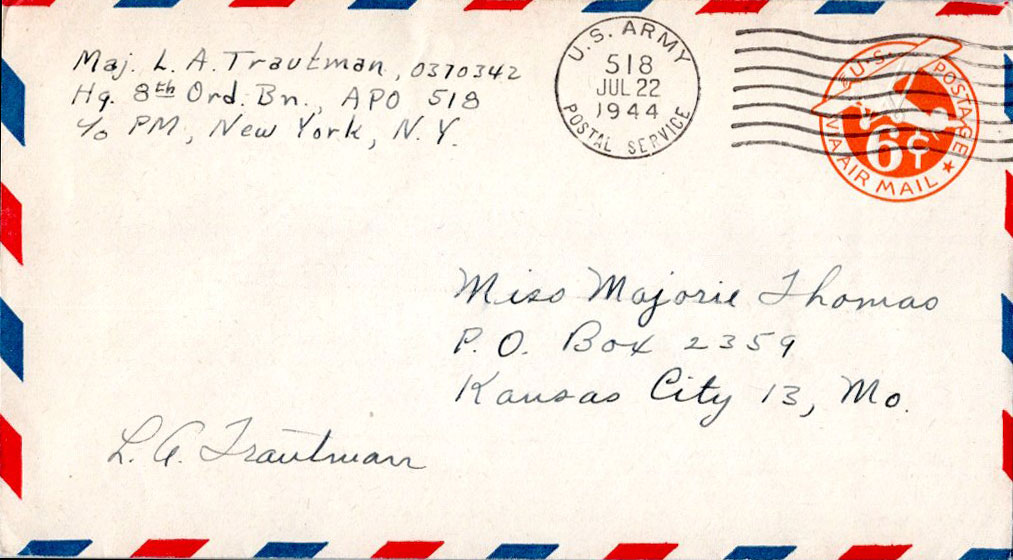 Maj. L. A. Trautman, 0370342
Hq. 8th Ord. Bn., APO 518
c/o PM, New York, N.Y.
U.S. ARMY
518
JUL 22
1944
POSTAL SERVICE
U.S. POSTAGE
6¢
VIA AIR MAIL
Miss Majorie Thomas
P.O. Box 2359
Kansas City 13, Mo.
L. A. Trautman